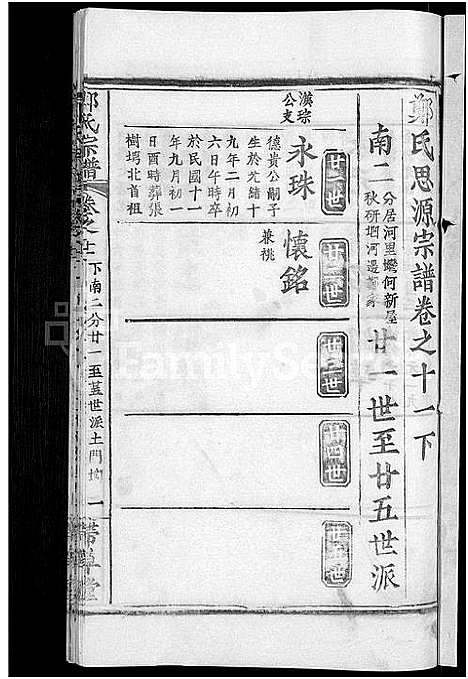 鄭氏思源宗譜卷之十一下
南二
分居河里灣何新屋
廿一世至廿五世派
廿一世
廿二世
廿三世
廿四世
廿五世
漢宗
公支
永珠
德貴公嗣子
生於光緒十
九年二月初
六日午時卒
於民國十一
年九月初一
日酉時葬張
樹塆北首祖
懷銘
兼桃
鄭氏宗譜
卷之十一
下南二分廿一至
世派土門
一
書草堂
FamilySearch